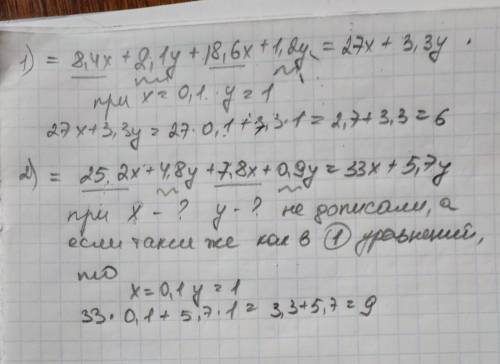 1) = 8,4x + 2,1y + 18,6x + 1,2y = 27x + 3,3y.
при x = 0,1. y = 1
27x + 3,3y = 27 · 0,1 + 3,3 · 1 = 2,7 + 3,3 = 6
2) = 25,2x + 4,8y + 7,8x + 0,9y = 33x + 5,7y
при x - ? y - ? не дописали, а
если такие же как в ① уравнений,
то
x = 0,1 y = 1
33 · 0,1 + 5,7 · 1 = 3,3 + 5,7 = 9